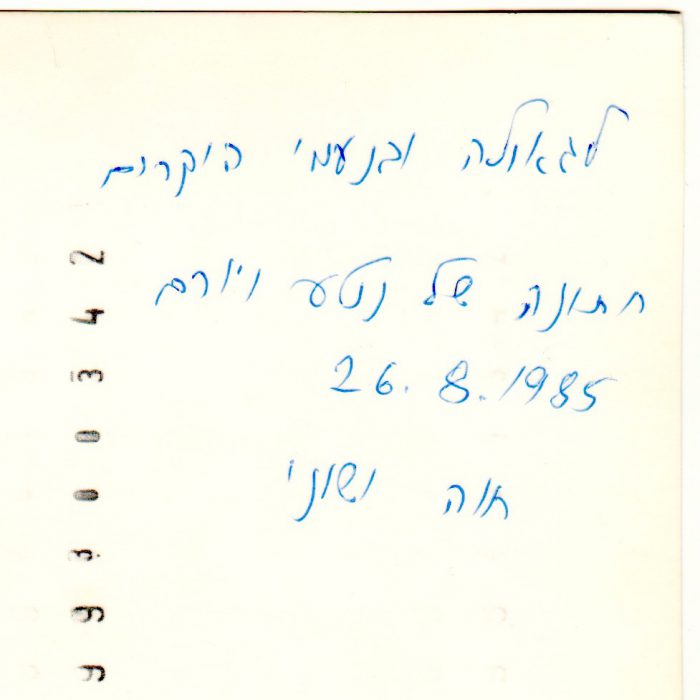 לגאולה ובנעמי היקרים
חתונה של נטע ויורם
26.8.1985
חוה ושוני
9930034 2